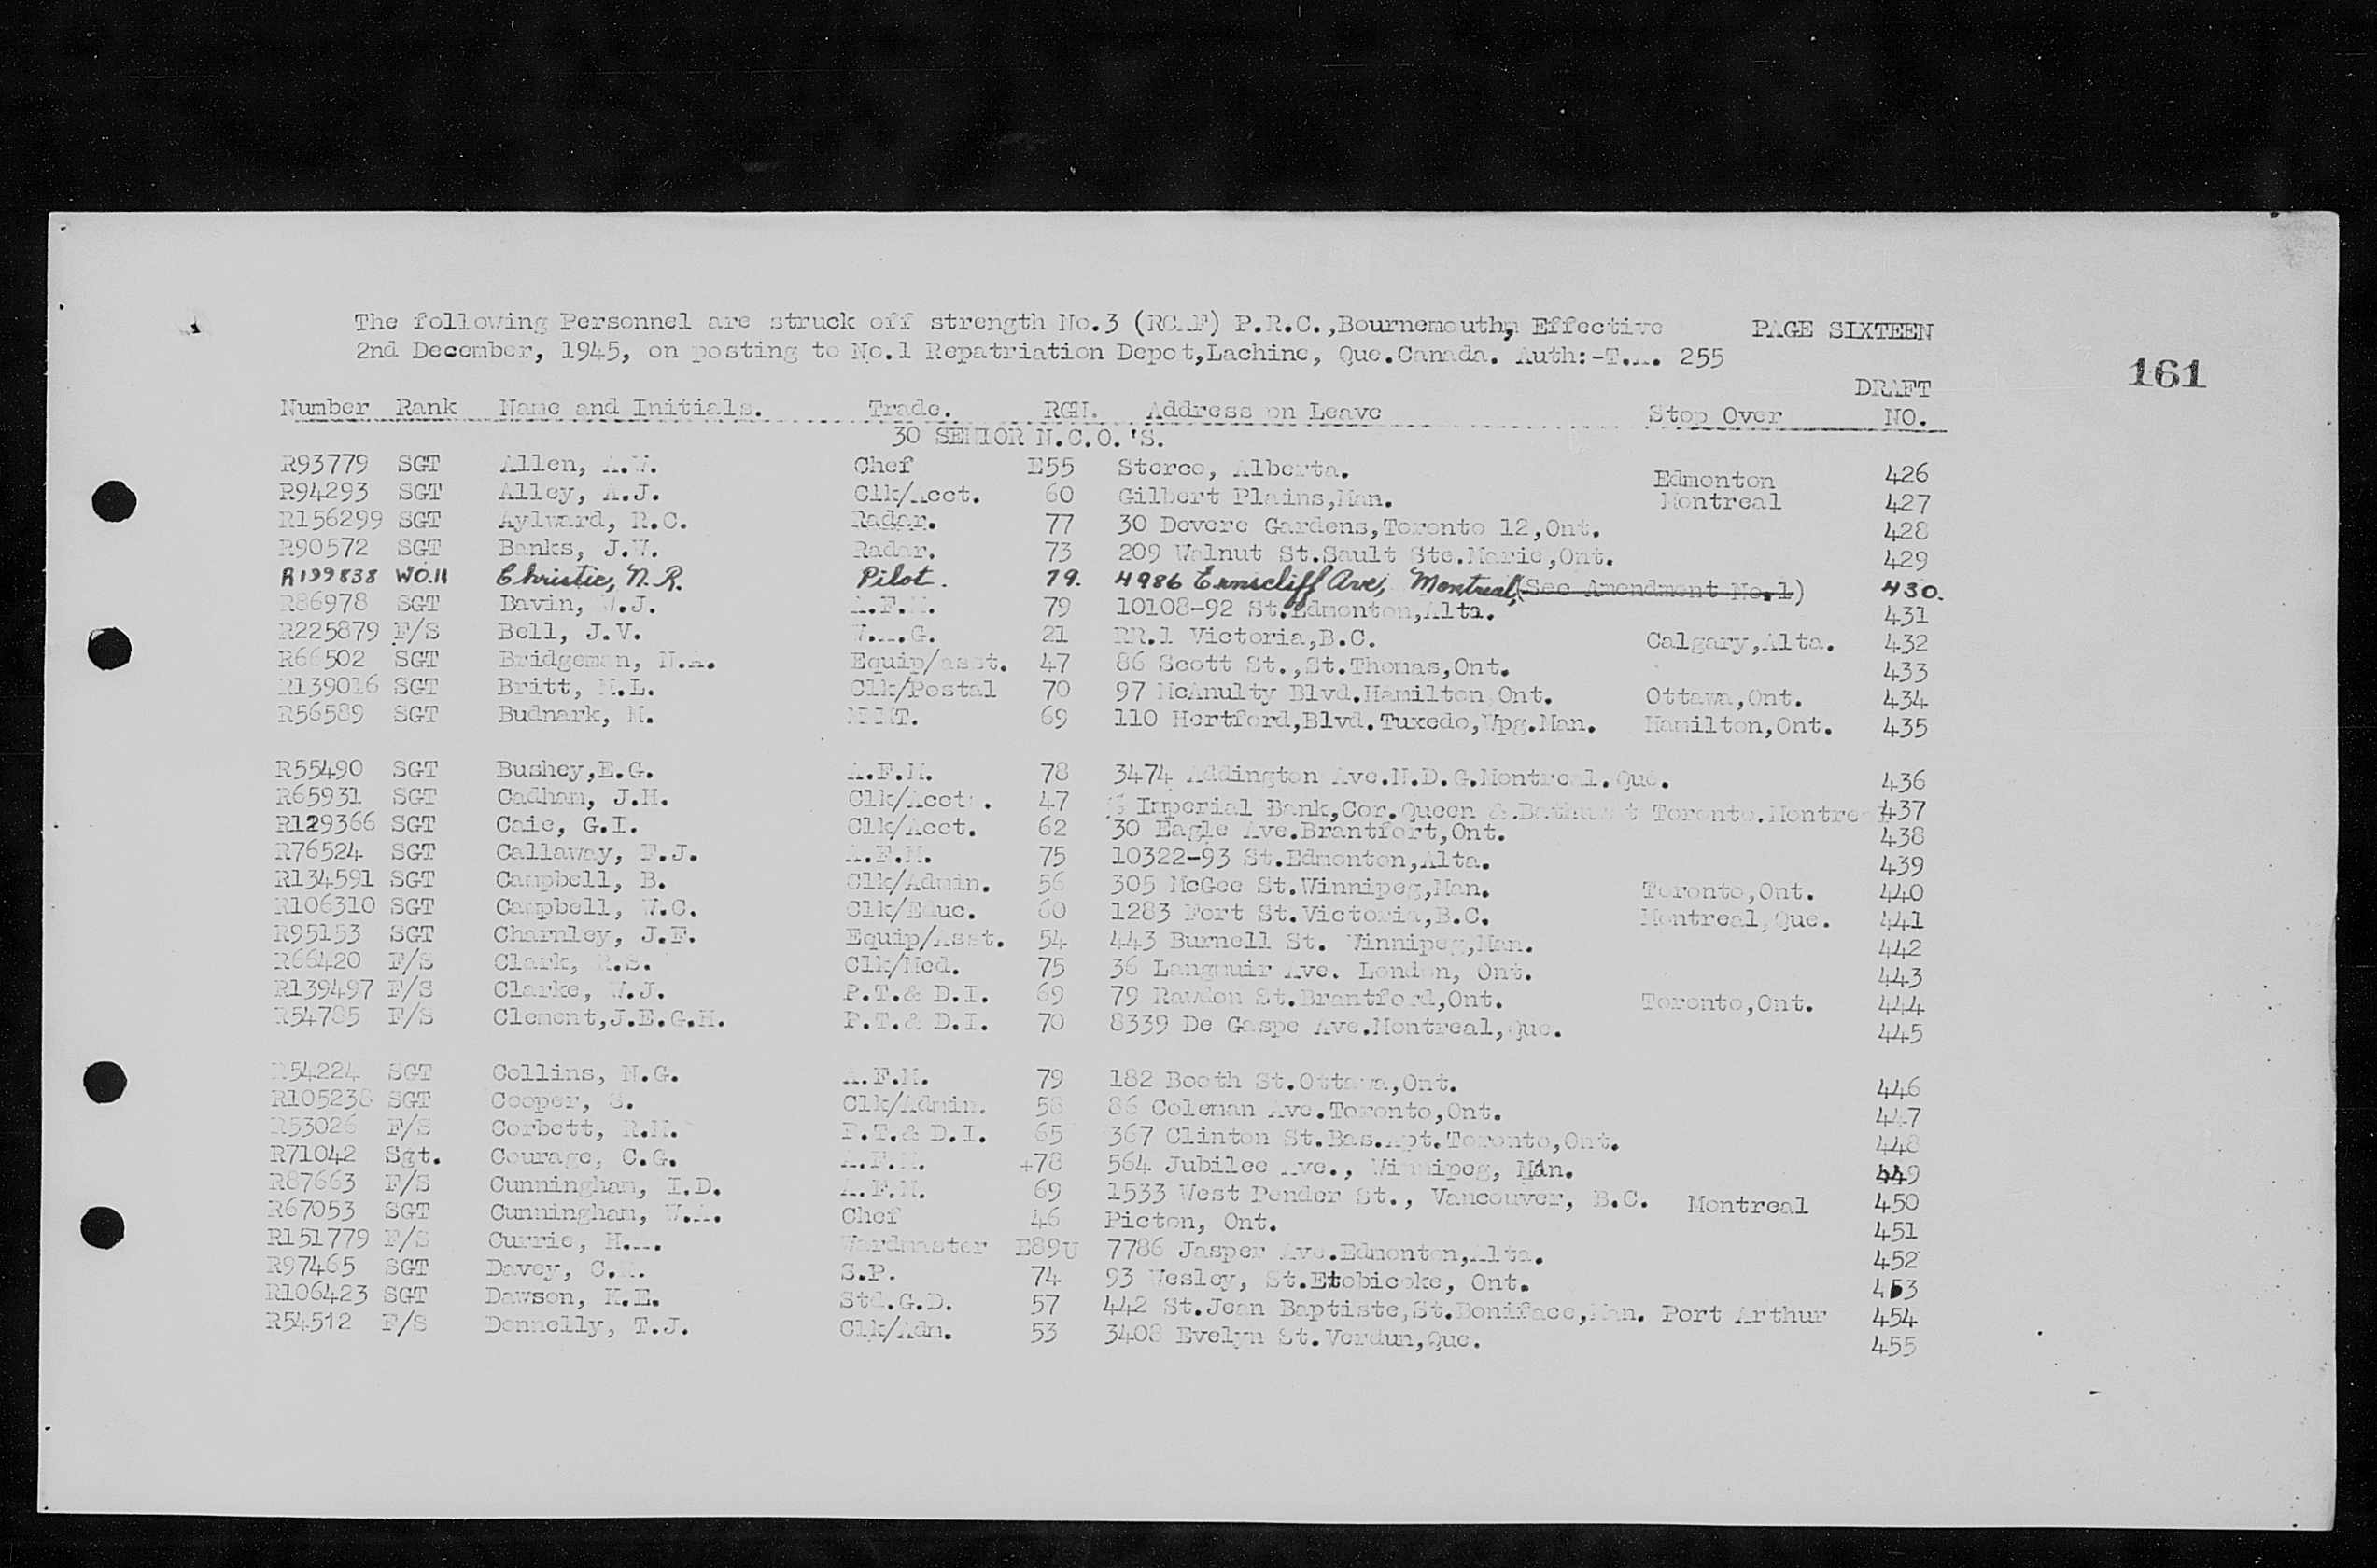 The following Personnel are struck off strength No.3 (RCAF) P.R.C.,Bournemouth, Effective PAGE SIXTEEN
2nd December, 1945, on posting to No.1 Repatriation Depot,Lachine, Que.Canada. Auth:-T.A. 255
161
DRAFT
Number Rank Name and Initials. Trade. RGN. Address on Leave Stop Over NO.
30 SENIOR N.C.O.'S.
R93779 SGT Allen, A.W. Chef E55 Sterco, Alberta. Edmonton 426
R94293 SGT Alley, A.J. Clk/Acct. 60 Gilbert Plains,Man. Montreal 427
R156299 SGT Aylward, R.C. Radar. 77 30 Devere Gardens,Toronto 12,Ont. 428
R90572 SGT Banks, J.W. Radar. 73 209 Walnut St.Sault Ste.Marie,Ont. 429
R199838 WO.II Christie, N.R. Pilot. 79. 4986 Ernscliff Ave, Montreal, (See Amendment No.1) 430.
R86978 SGT Bavin, W.J. A.F.M. 79 10108-92 St.Edmonton,Alta. 431
R225879 F/S Bell, J.V. W.A.G. 21 RR.1 Victoria,B.C. Calgary,Alta. 432
R66502 SGT Bridgeman, N.A. Equip/asst. 47 86 Scott St.,St.Thomas,Ont. 433
R139016 SGT Britt, M.L. Clk/Postal 70 97 McAnulty Blvd.Hamilton,Ont. Ottawa,Ont. 434
R56589 SGT Budnark, M. MT. 69 110 Hertford,Blvd.Tuxedo,Wpg.Man. Hamilton,Ont. 435
R55490 SGT Bushey,E.G. A.F.M. 78 3474 Addington Ave.N.D.G.Montreal.Que. 436
R65931 SGT Cadham, J.H. Clk/Acct. 47 Imperial Bank,Cor.Queen &.Bathurst Toronto.Montreal 437
R129366 SGT Caie, G.I. Clk/Acct. 62 30 Eagle Ave.Brantfort,Ont. 438
R76524 SGT Callaway, F.J. A.F.M. 75 10322-93 St.Edmonton,Alta. 439
R134591 SGT Campbell, B. Clk/Admin. 56 305 McGee St.Winnipeg,Man. Toronto,Ont. 440
R106310 SGT Campbell, W.C. Clk/Educ. 60 1283 Fort St.Victoria,B.C. Montreal,Que. 441
R95153 SGT Charnley, J.F. Equip/Asst. 54 443 Burnell St. Winnipeg,Man. 442
R66420 F/S Clark, R.S. Clk/Med. 75 36 Langmuir Ave. London, Ont. 443
R139497 F/S Clarke, W.J. P.T.& D.I. 69 79 Rawdon St.Brantford,Ont. Toronto,Ont. 444
R54785 F/S Clement,J.E.G.H. P.T.& D.I. 70 8339 De Gaspe Ave.Montreal,Que. 445
R54224 SGT Collins, M.G. A.F.M. 79 182 Booth St.Ottawa,Ont. 446
R105238 SGT Cooper, S. Clk/Admin. 58 86 Coleman Ave.Toronto,Ont. 447
R53026 F/S Corbett, R.M. P.T.& D.I. 65 367 Clinton St.Bas.Apt.Toronto,Ont. 448
R71042 Sgt. Courage, C.G. A.F.M. +78 564 Jubilee Ave., Winnipeg, Man. 449
R87663 F/S Cunningham, I.D. A.F.M. 69 1533 West Pender St., Vancouver, B.C. Montreal 450
R67053 SGT Cunningham, W.A. Chef 46 Picton, Ont. 451
R151779 F/S Currie, H.A. Wardmaster E89U 7786 Jasper Ave.Edmonton,Alta. 452
R97465 SGT Davey, C. S.P. 74 93 Wesley, St.Etobicoke, Ont. 453
R106423 SGT Dawson, K.E. Std.G.D. 57 442 St.Jean Baptiste,St.Boniface,Man. Port Arthur 454
R54512 F/S Donnelly, T.J. Clk/Adm. 53 3408 Evelyn St.Verdun,Que. 455